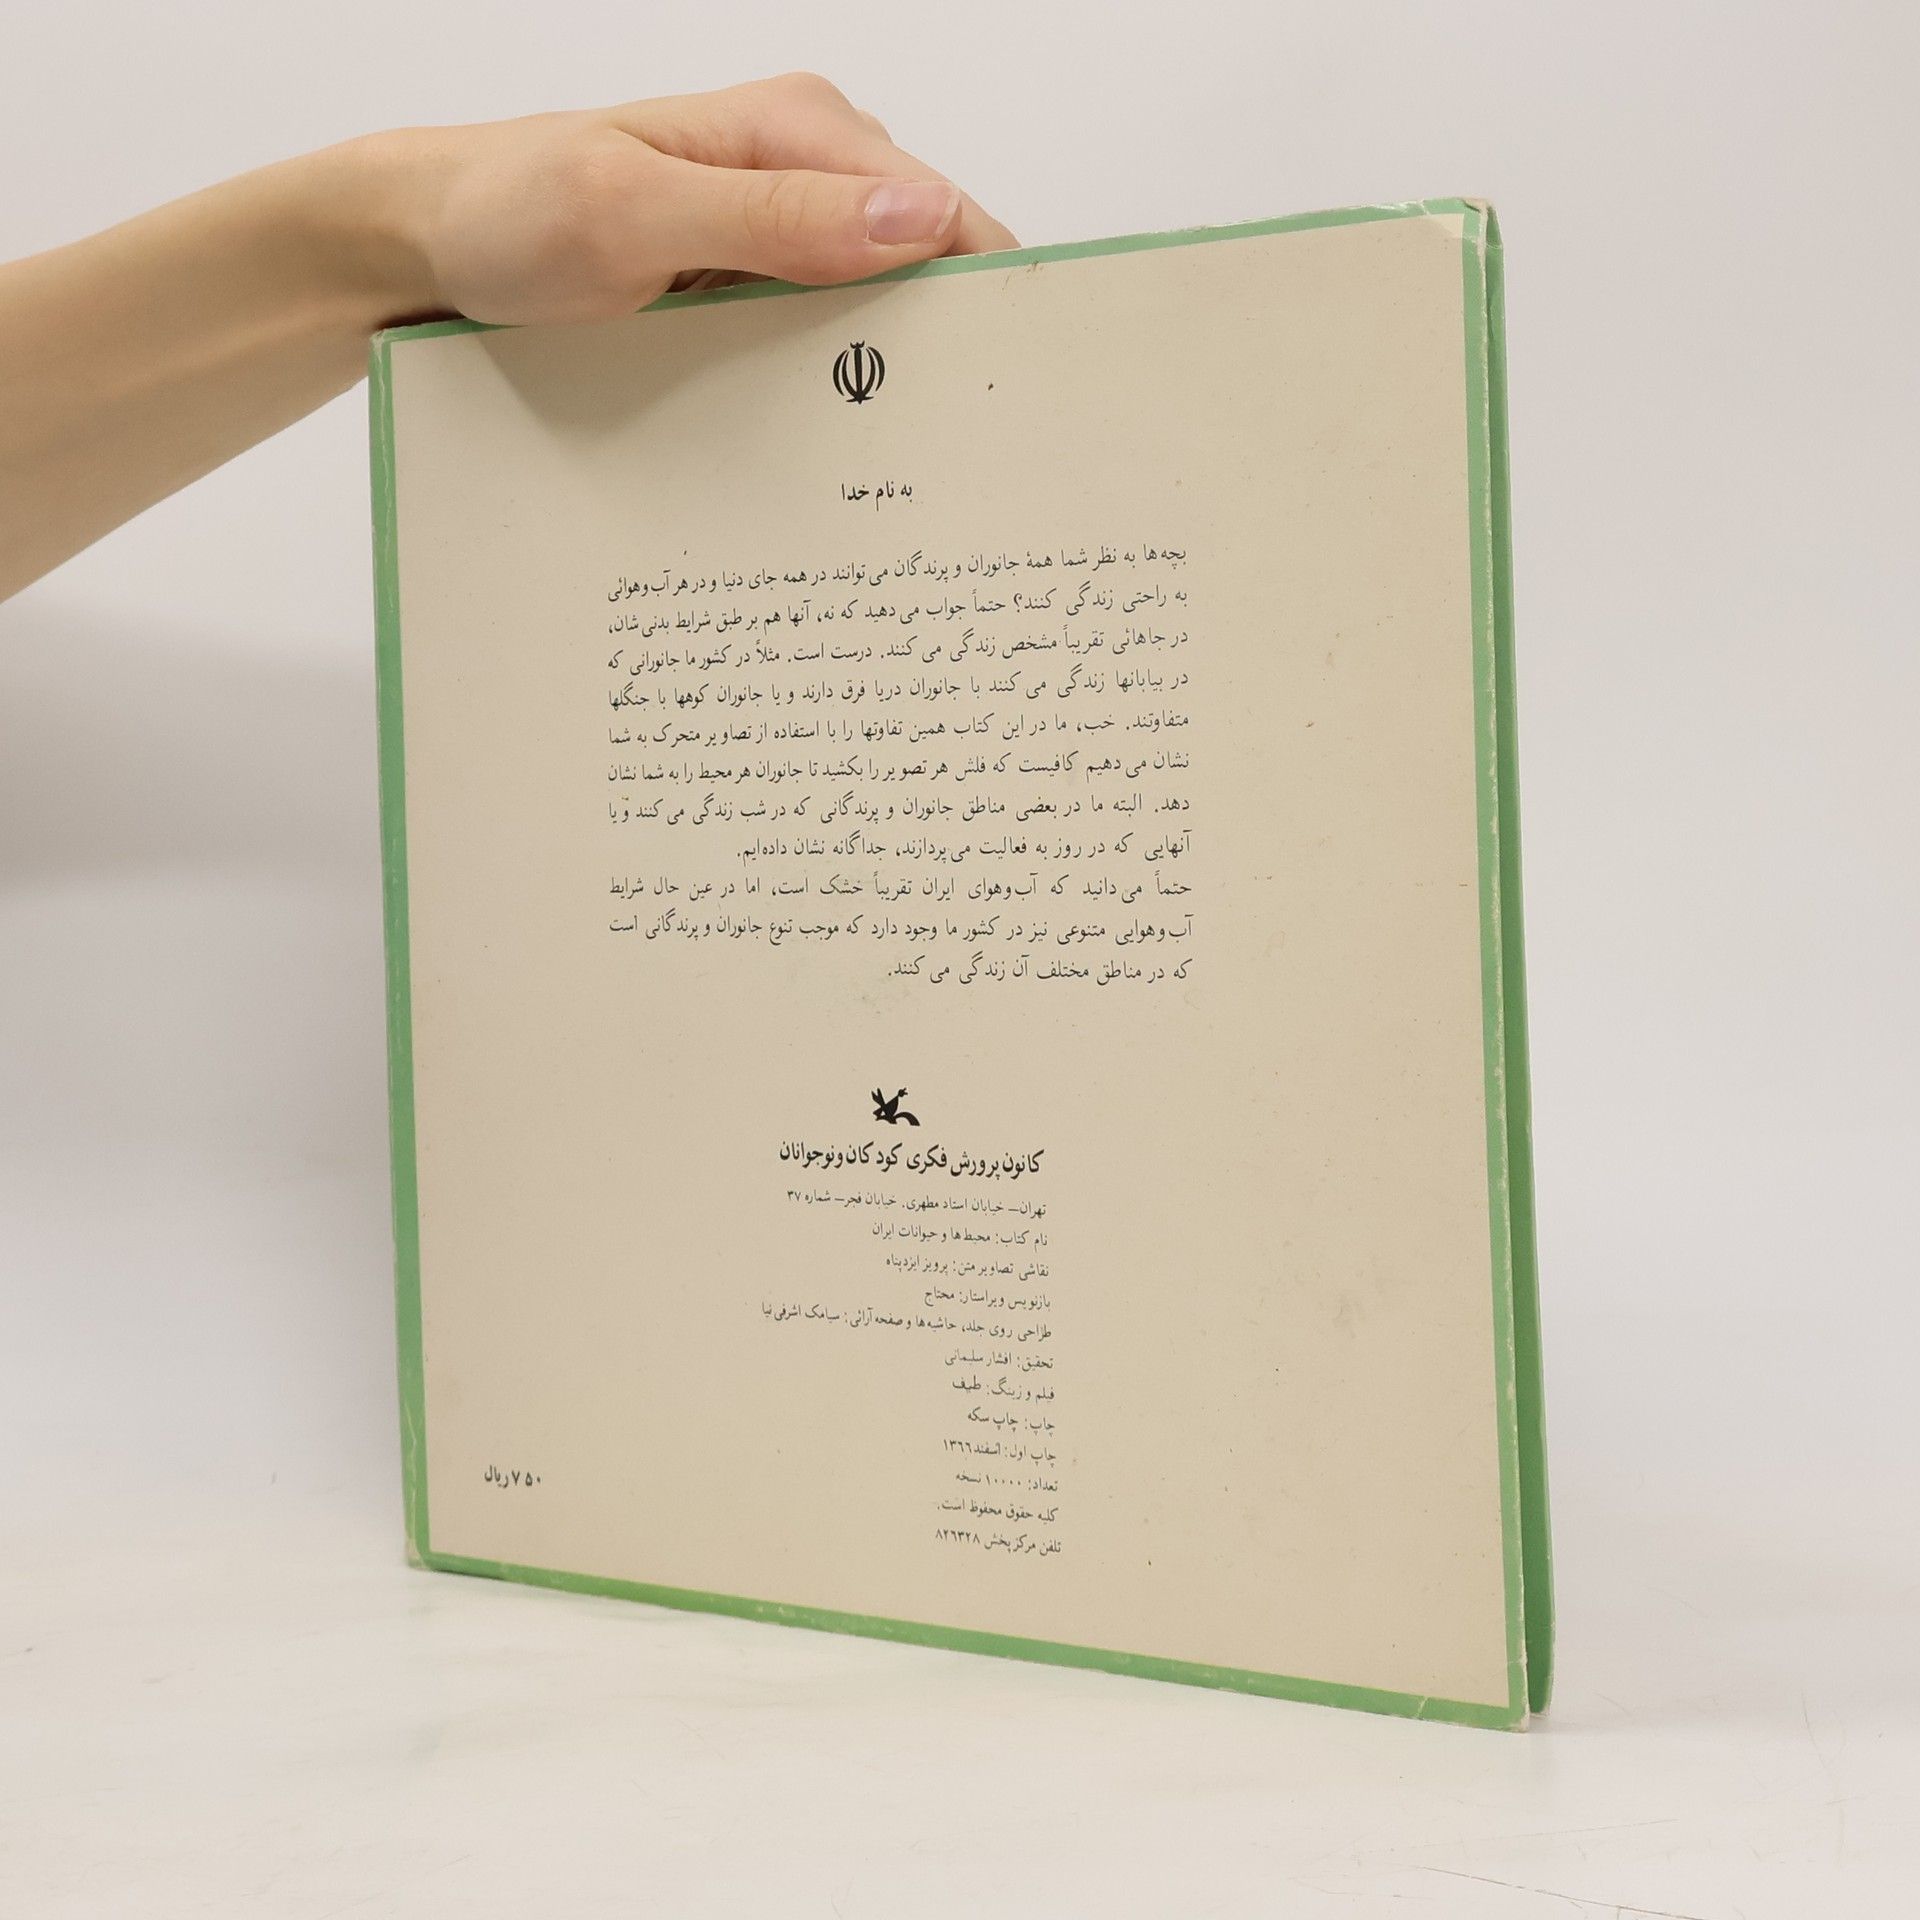 به نام خدا
بچه‌ها به نظر شما همهٔ جانوران و پرندگان می‌توانند در همه جای دنیا و در هر آب‌وهوائی
به راحتی زندگی کنند؟ حتماً جواب می‌دهید که نه، آنها هم بر طبق شرایط بدنی‌شان،
در جاهائی تقریباً مشخص زندگی می‌کنند. درست است. مثلاً در کشور ما جانورانی که
در بیابانها زندگی می‌کنند با جانوران دریا فرق دارند و یا جانوران کوهها با جنگلها
متفاوتند. خب، ما در این کتاب همین تفاوتها را با استفاده از تصاویر متحرک به شما
نشان می‌دهیم کافیست که فلش هر تصویر را بکشید تا جانوران هر محیط را به شما نشان
دهد. البته ما در بعضی مناطق جانوران و پرندگانی که در شب زندگی می‌کنند و یا
آنهایی که در روز به فعالیت می‌پردازند، جداگانه نشان داده‌ایم.
حتماً می‌دانید که آب‌وهوای ایران تقریباً خشک است، اما در عین حال شرایط
آب‌وهوایی متنوعی نیز در کشور ما وجود دارد که موجب تنوع جانوران و پرندگانی است
که در مناطق مختلف آن زندگی می‌کنند.
کانون پرورش فکری کودکان و نوجوانان
تهران– خیابان استاد مطهری. خیابان فجر– شماره ۳۷
نام کتاب: محیط‌ها و حیوانات ایران
نقاشی تصاویر متن: پرویز ایزدپناه
بازنویس ویراستار: محتاج
طرّاحی روی جلد، حاشیه‌ها و صفحه‌آرائی: سیامک اشرفی‌نیا
تحقیق: افشار سلیمانی
فیلم و زینگ: طیف
چاپ: چاپ سکه
چاپ اول: اسفند ۱۳۶۶
تعداد: ۱۰۰۰۰ نسخه
کلیه حقوق محفوظ است.
تلفن مرکز پخش ۸۲۶۳۲۸
۷۵۰ ریال